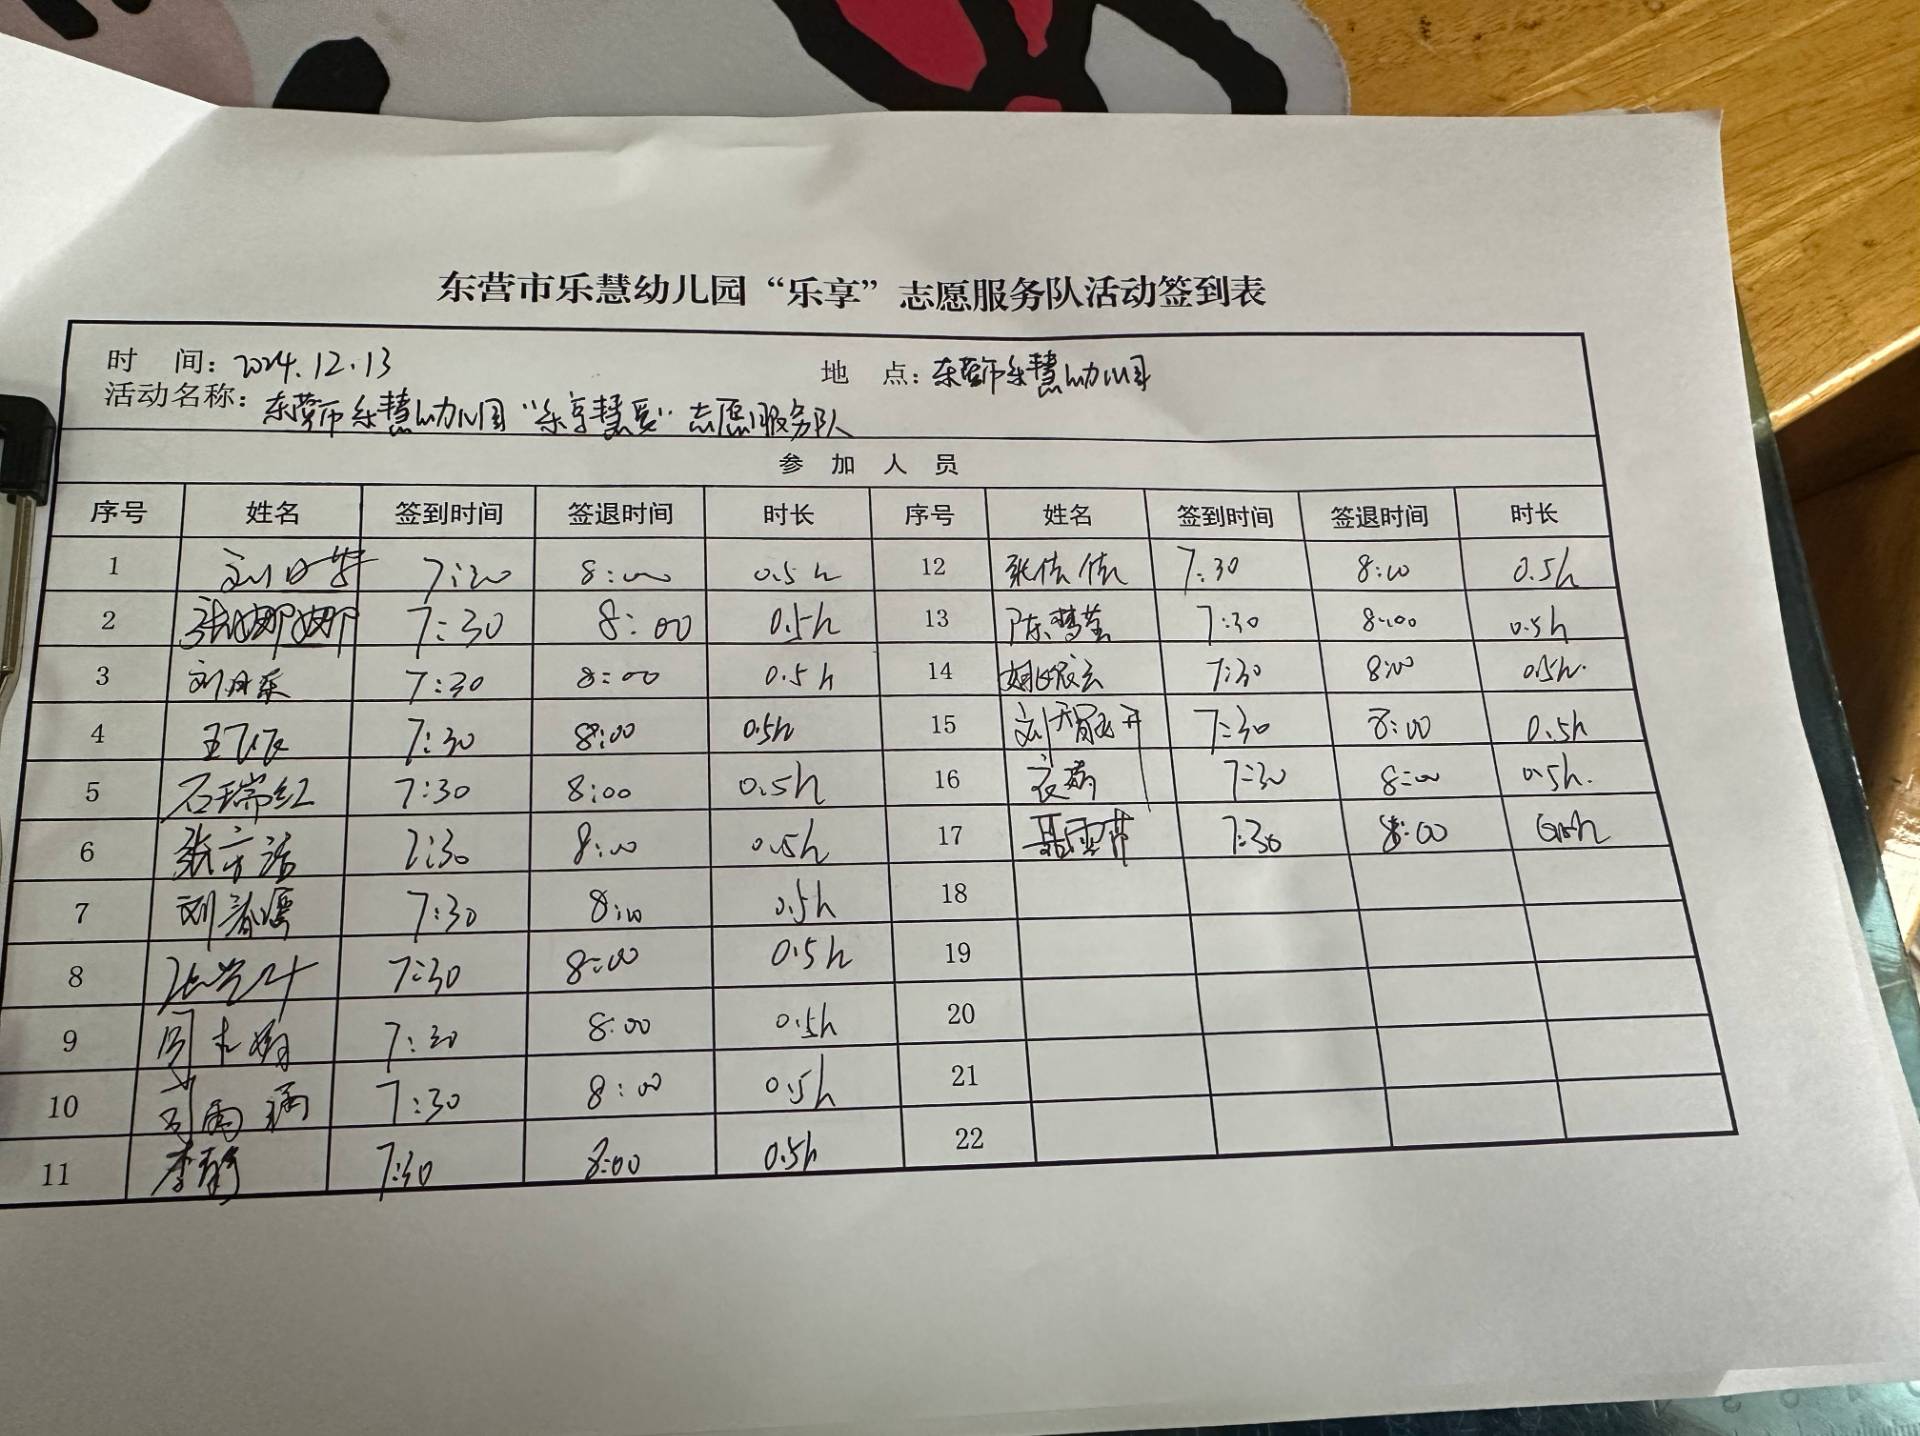 东营市乐慧幼儿园“乐享”志愿服务队活动签到表
时 间：2024.12.13 地 点：东营市乐慧幼儿园
活动名称：东营市乐慧幼儿园“乐享慧爱”志愿服务队
参 加 人 员
序号 姓名 签到时间 签退时间 时长 序号 姓名 签到时间 签退时间 时长
1 7:30 8:00 0.5h 12 张佳佳 7:30 8:00 0.5h
2 张娜娜 7:30 8:00 0.5h 13 陈梦莹 7:30 8:00 0.5h
3 刘丹乐 7:30 8:00 0.5h 14 7:30 8:00 0.5h.
4 7:30 8:00 0.5h 15 7:30 8:00 0.5h
5 石瑞红 7:30 8:00 0.5h 16 7:30 8:00 0.5h.
6 7:30 8:00 0.5h 17 7:30 8:00 0.5h
7 7:30 8:00 0.5h 18
8 7:30 8:00 0.5h 19
9 7:30 8:00 0.5h 20
10 7:30 8:00 0.5h 21
11 李静 7:30 8:00 0.5h 22